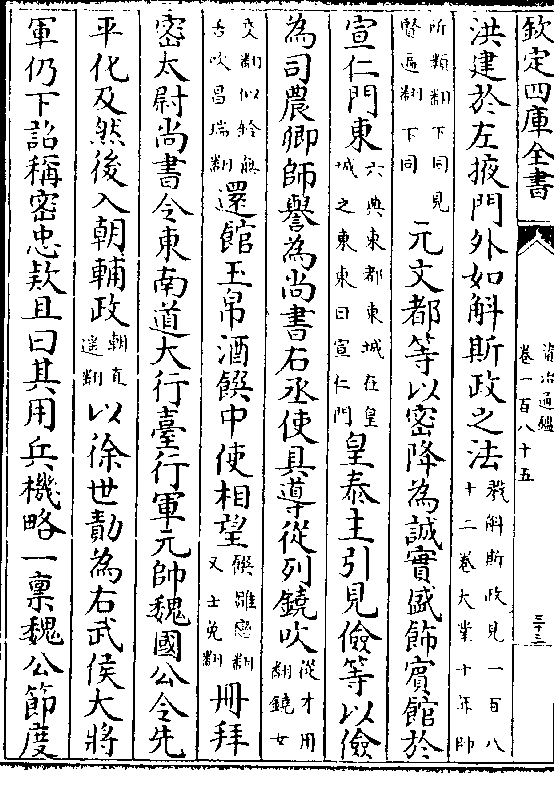 欽定四庫全書
資治通鑑
卷一百八十五
三十三
洪建於左掖門外如斛斯政之法
殺斛斯政見一百八
十二卷大業十年帥
所類翻下同見
賢遍翻下同
元文都等以密降為誠實盛飾賓館於
宣仁門東
六典東都東城在皇
城之東東曰宣仁門
皇泰主引見儉等以儉
為司農卿師譽為尚書右丞使具導從列鐃吹
從才用
翻鐃女
交翻似鈴無
舌吹昌瑞翻
還館玉帛酒饌中使相望
饌雛戀翻
又士免翻
冊拜
密太尉尚書令東南道大行臺行軍元帥魏國公令先
平化及然後入朝輔政
朝直
遙翻
以徐世勣為右武侯大將
軍仍下詔稱密忠款且曰其用兵機略一稟魏公節度